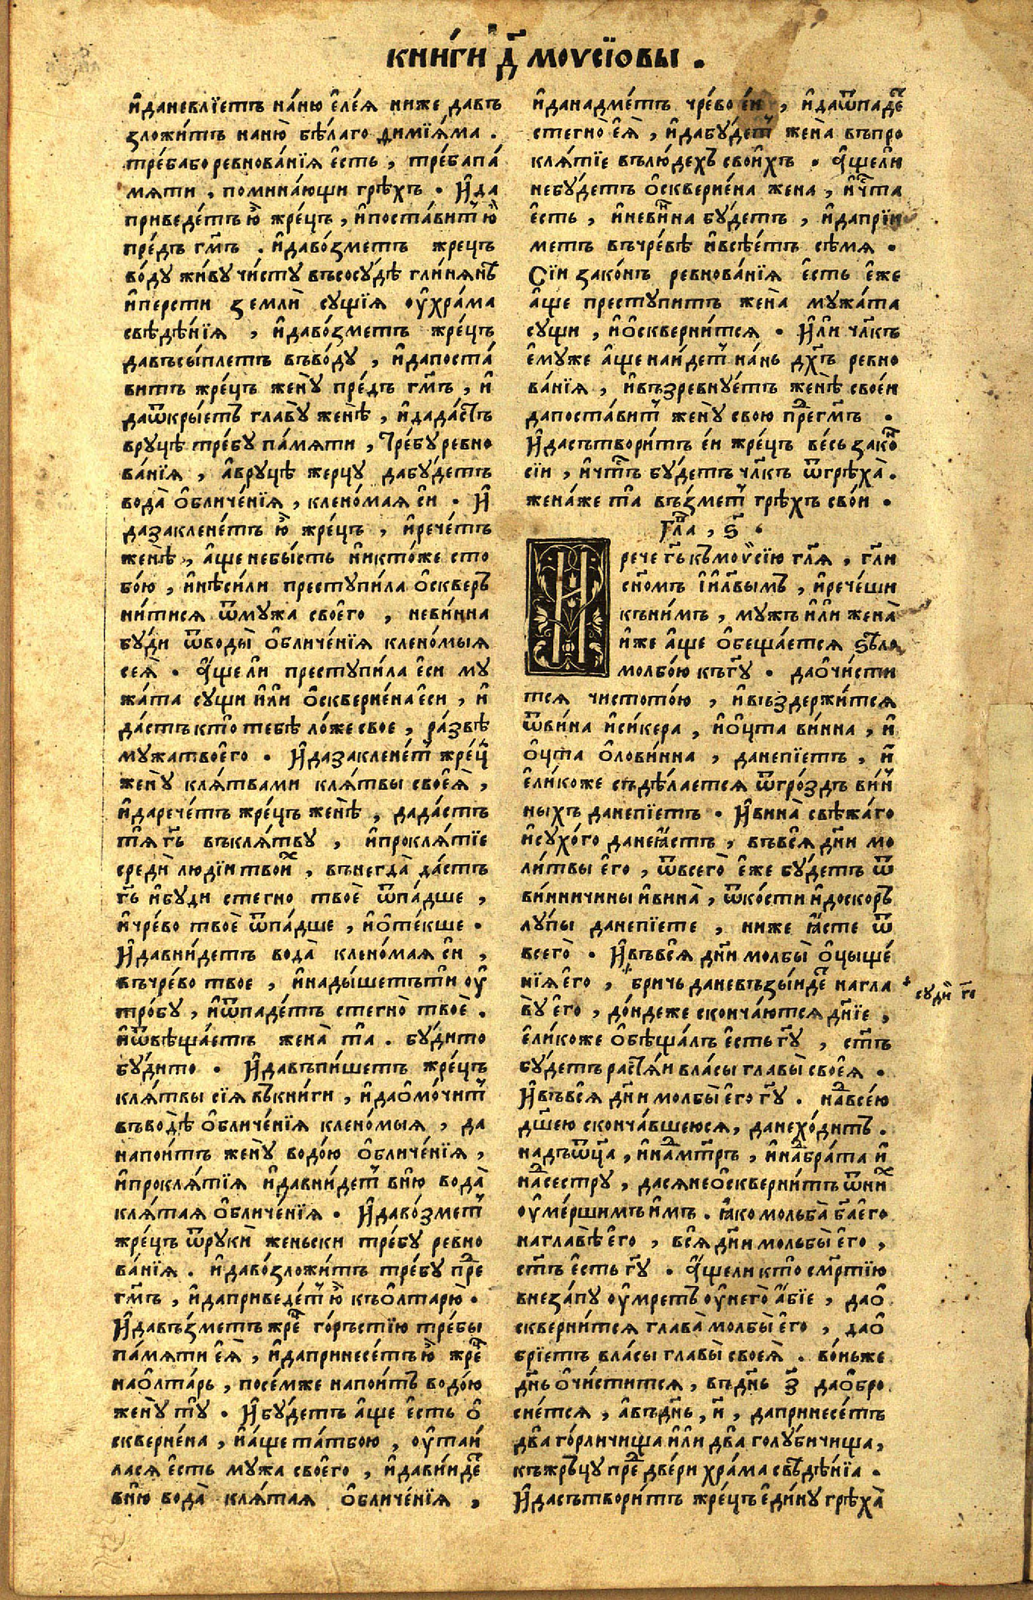 книги д҃ моѵсїовы .
и҆даневлїетъ на́ню є҆ле́я ниже давъ
зложи́тъ наню̀ бѣ́лаго димїя́ма .
тре́бабо ревнова́нїя є҆сть , тре́бапа́
мяти . помина́ющи грѣ́хъ . И҆да
приведе́тъ ю҆̀ жре́цъ , и҆поста́витъ ю҆̀
пре́дъ гм҃ъ . и҆даво́зметъ жрецъ
во́ду жи́ву чи́сту въсосу́дѣ гли́нянѣ
и҆персти землѝ сущїя ѹ҆хра́ма
свѣдѣ́нїя , и҆даво́зметъ жре́цъ
давъсы́плетъ въво́ду , и҆дапоста́
витъ жре́цъ жену̀ пре́дъ гм҃ъ , и҆
даѿкры́етъ главу̀ женѣ̀ , и҆дада́стъ
вруцѣ̀ тре́бу па́мяти , требу ревно
ва́нїя , а҆вруцѣ̀ жерцу̀ дабу́детъ
вода̀ ѻ҆бличе́нїя , клено́мая сїи . И҆
дазакленетъ ю҆̀ жре́цъ , и҆рече́тъ
женѣ̀ , а҆ще небы́сть никто́же сто
бо́ю , и҆нѣси́ли преступи́ла ѻ҆сквер
ни́тися ѿмужа своего̀ , неви́нна
бу́ди ѿводы̀ ѻ҆бличе́нїя клено́мыя
сея̀ . А҆щели преступи́ла є҆си му
жа́та сущи и҆ли ѻ҆скверне́на є҆си , и҆
да́стъ кто тебѣ̀ ло́же свое , ра́звѣ
му́жатвоего . И҆дазаклене́тъ жре́цъ
жену̀ кля́твами кля́твы своея̀ ,
и҆дарече́тъ жре́цъ женѣ̀ , дада́стъ
тя̀ гь҃ въкля́тву , и҆прокля́тїе
средѝ люді́и твои́х , внегда̀ да́стъ
гь҃ и҆буди стегно̀ твоѐ ѿпа́дше ,
и҆чре́во твоѐ ѿпа́дше , и҆ѻ҆те́кше .
И҆давни́детъ вода̀ клено́мая сїи ,
въчре́во твое , и҆нады́шетъти ѹ҆
тро́бу , и҆ѿпаде́тъ стегно̀ твоѐ .
и҆ѿвѣща́етъ жена̀ та . бу́дито
бу́дито . И҆давпи́шетъ жре́цъ
кля́твы сїя̀ въкни́ги , и҆даѻ҆мо́читъ
въводѣ̀ ѻ҆бличе́нїя клено́мыя , да
напои́тъ жену̀ водо́ю ѻ҆бличе́нїя ,
и҆прокля́тїя и҆давни́детъ вню̀ вода̀
кля́тая ѻ҆бличе́нїя . И҆даво́зметъ
жре́цъ ѿрукѝ женьски тре́бу ревно
ва́нїя . и҆даво́зложитъ тре́бу пре
гм҃ъ , и҆даприведе́тъ ю҆̀ къѻ҆лтарю̀ .
И҆давъзметъ жре го́рьстїю тре́бы
па́мяти є҆я̀ , и҆дапринесе́тъ ю҆̀ жре
наѻ҆лта́рь , посе́мже напои́тъ водо́ю
жену̀ ту . И҆бу́детъ а҆ще є҆сть ѻ҆
скверне́на , и҆а҆ще та́тбою , ѹ҆таи́
лася є҆сть мужа своего̀ , и҆давни́де
вню̀ вода̀ кля́тая ѻ҆бличе́нїя ,
и҆данадме́тъ чре́во є҆и , и҆даѿпаде
стегно̀ є҆я̀ , и҆дабу́детъ жена̀ въпро
кля́тїе въ лю́дехъ свои́хъ . А҆щели
небу́детъ ѻ҆скверне́на жена , и҆чи́ста
є҆сть , и҆неви́нна бу́детъ , и҆дапріи
метъ въчре́вѣ и҆всѣ́етъ сѣ́мя .
Сїи зако́нъ ревнова́нїя є҆сть є҆же
а҆ще преступи́тъ жена̀ мужа́та
сущи , и҆ѻ҆скверни́тся . И҆ли чл҃къ
є҆муже а҆ще наи́детъ нань дх҃ъ ревно
ва́нїя , и҆възревну́етъ женѣ̀ своеи
дапоста́витъ жену̀ свою пре́гм҃ъ .
И҆дасътвори́тъ є҆и жре́цъ весь зако
сїи , и҆чи́стъ бу́детъ чл҃къ ѿгрѣха̀ .
жена́же та възметъ грѣ́хъ свои .
Гла , ѕ҃ .
И рече гь҃ къмоѵсїю гл҃я , гл҃и
сн҃омъ і҆и҃лвымъ , и҆рече́ши
къни́мъ , мужъ и҆ли жена̀
и҆же а҆ще ѻ҆беща́ется ѕѣло
молбо́ю къгу҃ . даѻ҆чи́сти
тся чистото́ю , и҆въздержи́тся
ѿвина̀ и҆сике́ра , и҆ѻ҆цта ви́нна , и҆
ѻ҆цта ѻ҆лови́нна , данепїетъ , и҆
є҆ли́коже съдѣ́лается ѿгро́здъ ви́н
ныхъ данепїетъ . И҆вина̀ свѣ́жаго
и҆сухо́го данеꙗ҆стъ , въвся̀ дн҃и мо
ли́твы є҆го , ѿвсего̀ є҆же бу́детъ ѿ
ви́нничины и҆вина̀ , ѿко́сти и҆доскор
лу́пы данепїете , ниже ꙗ҆сте ѿ
всего̀ . И҆въвся̀ дн҃и молбы̀ ѻ҆цыще́
нїя є҆го , бричь даневъзы́иде нагла
ву̀ є҆го , до́ндеже сконча́ются дн҃їе ,
є҆ли́коже ѻ҆бѣща́лъ є҆сть гу҃ , ст҃ъ
бу́детъ растя́и вла́сы главы̀ своея̀ .
И҆въвся̀ дн҃и молбы̀ є҆го гу҃ . надвсе́ю
дш҃ею сконча́вшеюся , данехо́дитъ .
надъѡ҆ц҃а , и҆надмт҃рь , и҆надбра́та и҆
надсестру , дасянеѻ҆скверни́тъ ѿних
ѹ҆ме́ршимъ и҆мъ . ꙗ҆ко мольба̀ ба҃ є҆го
наглавѣ̀ є҆го , вся̀ дн҃и мольбы̀ є҆го ,
ст҃ъ є҆сть гу҃ . А҆щели кто сме́ртїю
внеза́пу ѹ҆мретъ ѹ҆него̀ а҆бїе , даѻ҆
скверни́тся глава̀ молбы̀ є҆го , даѻ҆
брі́етъ вла́сы главы̀ своея̀ . во́ньже
дн҃ь ѻ҆чи́стится , въдн҃ь з҃ даѻ҆бро
сне́тся , а҆въдн҃ь , и҃ , дапринесе́тъ
два го́рличища и҆ли два голу́бичища ,
къжръцу пред две́ри хра́ма свѣдѣ́нїа .
И҆дасътвори́тъ жре́цъ є҆ди́ну грѣха̀